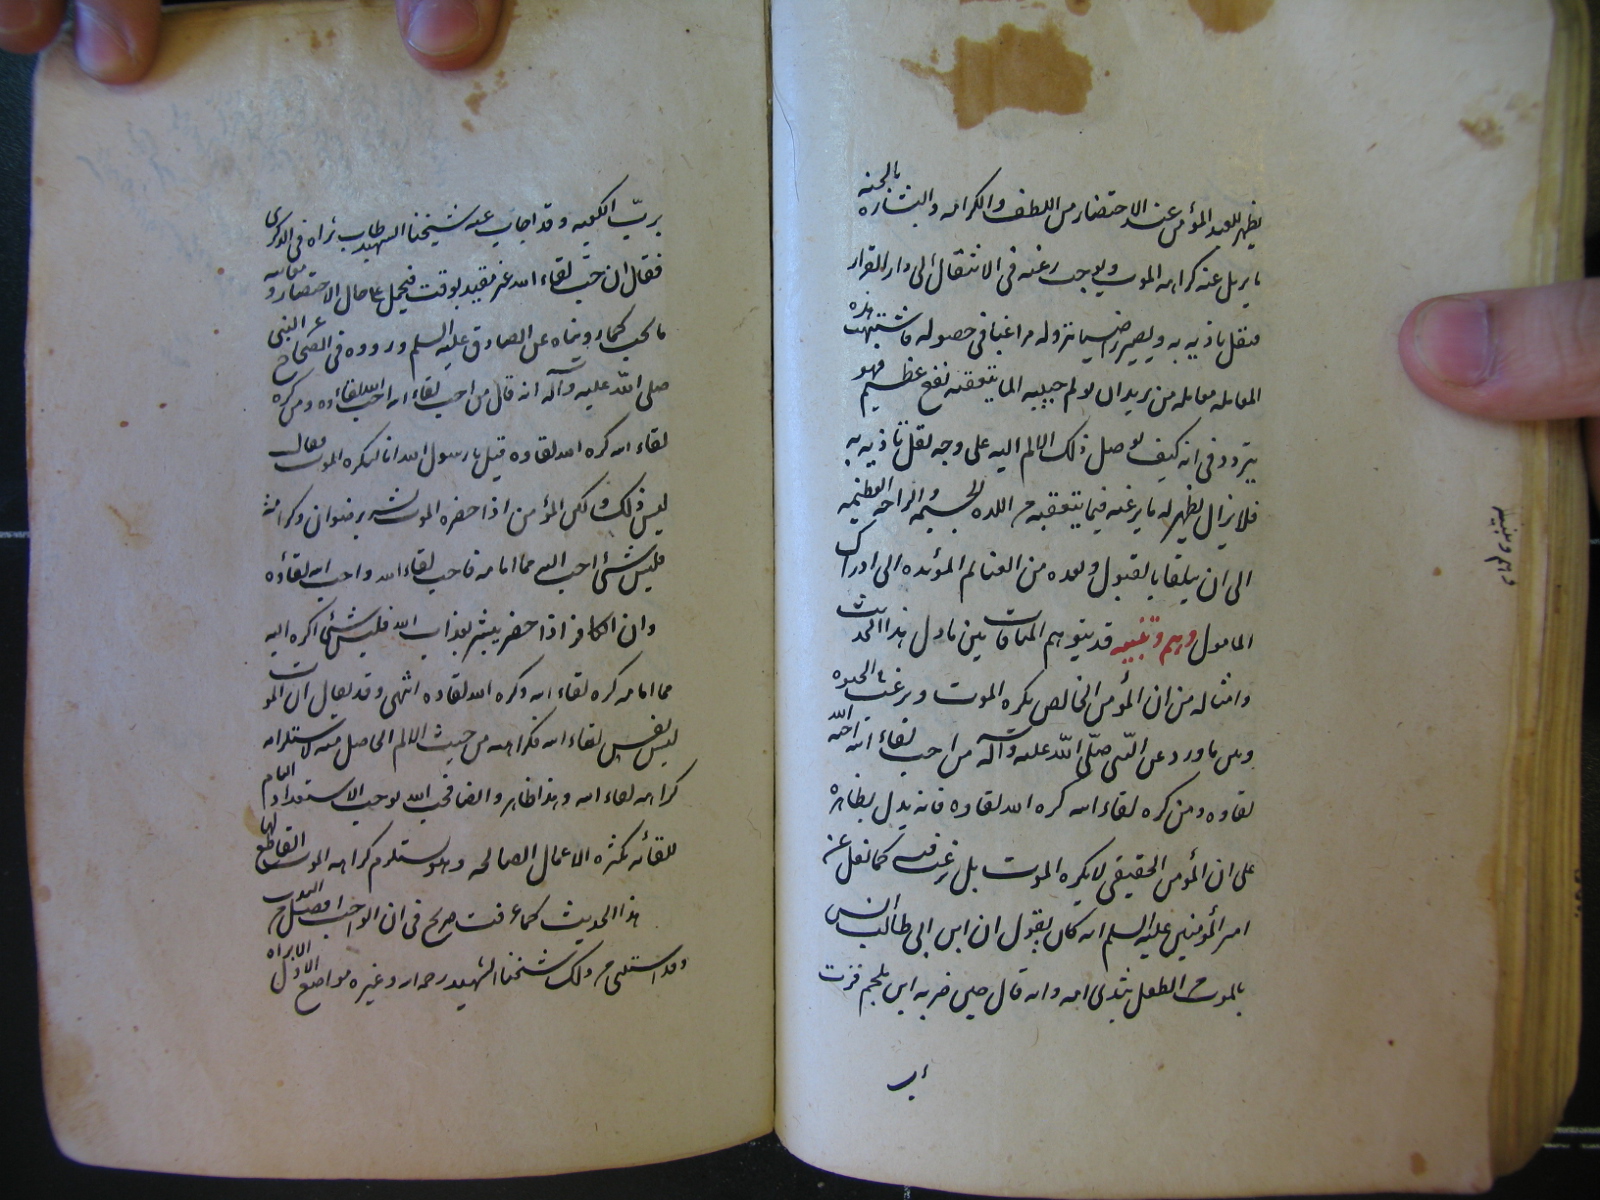 يظهر للعبد المؤمن عند الاحتضار من اللطف والكرامة والبشارة بالجنة
ما يزيل عنه كراهة الموت ويوجب رغبته في الانتقال الى دار القرار
فيقل تأذيه به ويصير راضيا بنزوله راغبا في حصوله فاشبهت هذه
المعاملة معاملة من يريد ان يولم حبيبه الما يتعقبه نفع عظيم فهو
يتردد في انه كيف يوصل ذلك الالم اليه على وجه يقل تأذيه به
فلا يزال يظهر له ما يرغبه فيما يتعقبه من اللذة الجسيمة والراحة العظيمة
الى ان يتلقاه بالقبول ويعده من الغنائم المؤدية الى ادراك
المامول وهم وتنبيه قد يتوهم المنافات بين ما دل هذا الحديث
وامثاله من ان المؤمن الخالص يكره الموت ويرغب في الحيوة
وبين ما ورد عن النبي صلى الله عليه وآله من احب لقاء الله احب الله
لقاوه ومن كره لقاء الله كره الله لقاوه فانه يدل بظاهره
على ان المؤمن الحقيقي لا يكره الموت بل يرغب فيه كما نقل عن
امير المؤمنين عليه السلم انه كان يقول ان ابن ابي طالب انس
بالموت من الطفل بثدي امه وانه قال حين ضربه ابن ملجم فزت
وهم وتنبيه
برب الكعبة وقد اجاب عنه شيخنا الشهيد طاب ثراه في الذكرى
فقال ان حب لقاء الله غير مقيد بوقت فيحمل على حال الاحتضار ومعاينة
ما يحب كما رويناه عن الصادق عليه السلم ورووه في الصحاح عن النبي
صلى الله عليه وآله انه قال من احب لقاء الله احب الله لقاءه ومن كره
لقاء الله كره الله لقاوه قيل يا رسول الله انا لنكره الموت فقال
ليس ذلك ولكن المؤمن اذا حضره الموت بشر برضوان وكرامة
فليس شئ احب اليه مما امامه فاحب لقاء الله واحب الله لقاؤه
وان الكافر اذا حضر يبشر بعذاب الله فليس شئ اكره اليه
مما امامه كره لقاء الله وكره الله لقاوه انتهى وقد يقال ان الموت
ليس نفس لقاء الله فكراهته من حيث الالم الحاصل منه لا يستلزم
كراهة لقاء الله وهذا ظاهر وايضا فحب الله يوجب الاستعداد التام
للقائه بكثرة الاعمال الصالحة وهو يستلزم كراهة الموت القاطع لها
هذا الحديث كما عرفت صريح في ان الواجب افضل من الندب
وقد استثنى من ذلك شيخنا الشهيد رحمه الله وغيره مواضع الاول الابراء